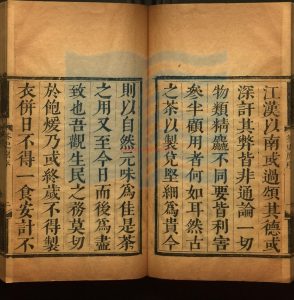 江漢以南或過頌其德或
深計其弊皆非通論一切
物類精麤不同要皆利害
叅半顧用者何如耳然古
之茶以製兌堅細爲貴今
則以自然元味爲佳是茶
之用又至今日而後爲盡
致也吾觀生民之務莫切
於飽煖乃或終歲不得製
衣併日不得一食安計不